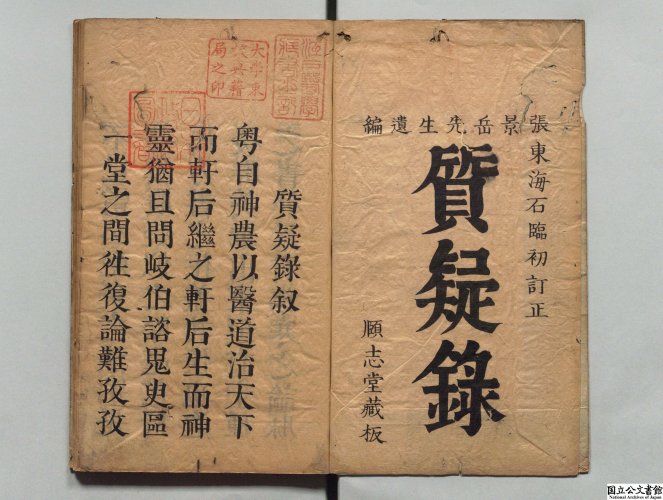 張東海石臨初訂正
景岳先生遺編
質疑錄
願志堂藏板
質疑錄叙
粤自神農以醫道治天下
而軒后繼之軒后生而神
靈猶且問岐伯諮鬼臾區
一堂之間徃復論難孜孜
大學東
校典籍
局之印
国立公文書館
National Archives of Japan